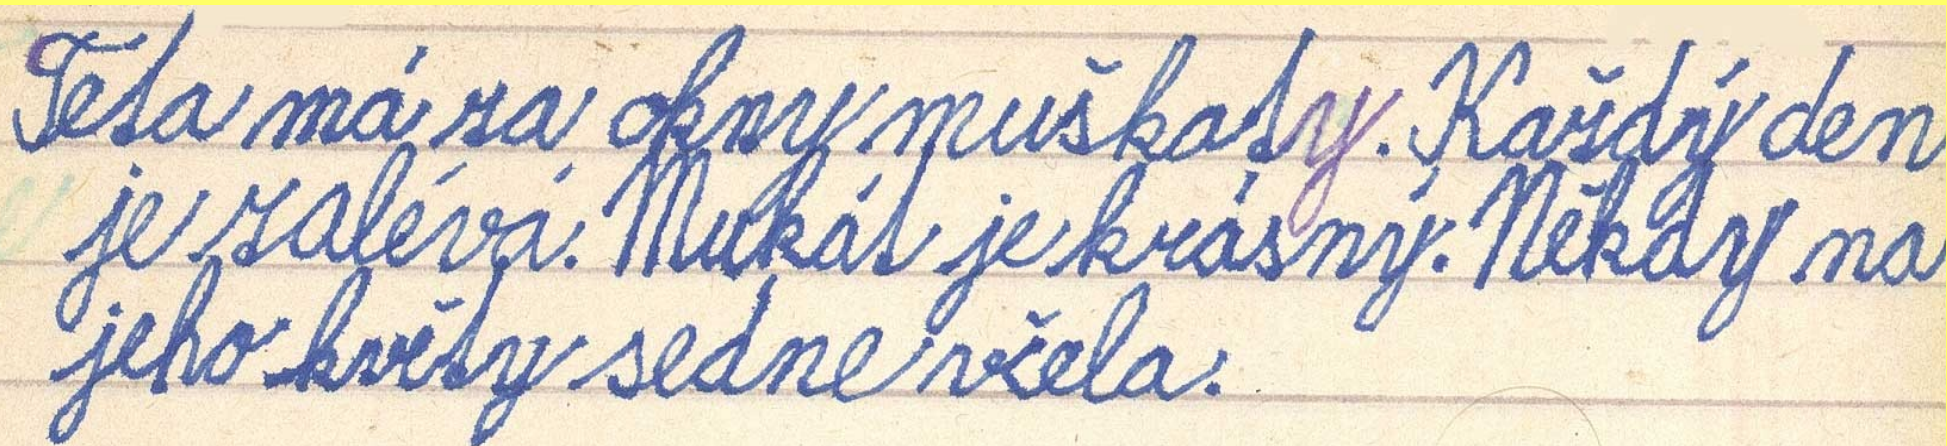 Teta má za okny muškaty. Každý den
je zalévá. Mukát je krásný. Někdy na
jeho květy sedne včela.